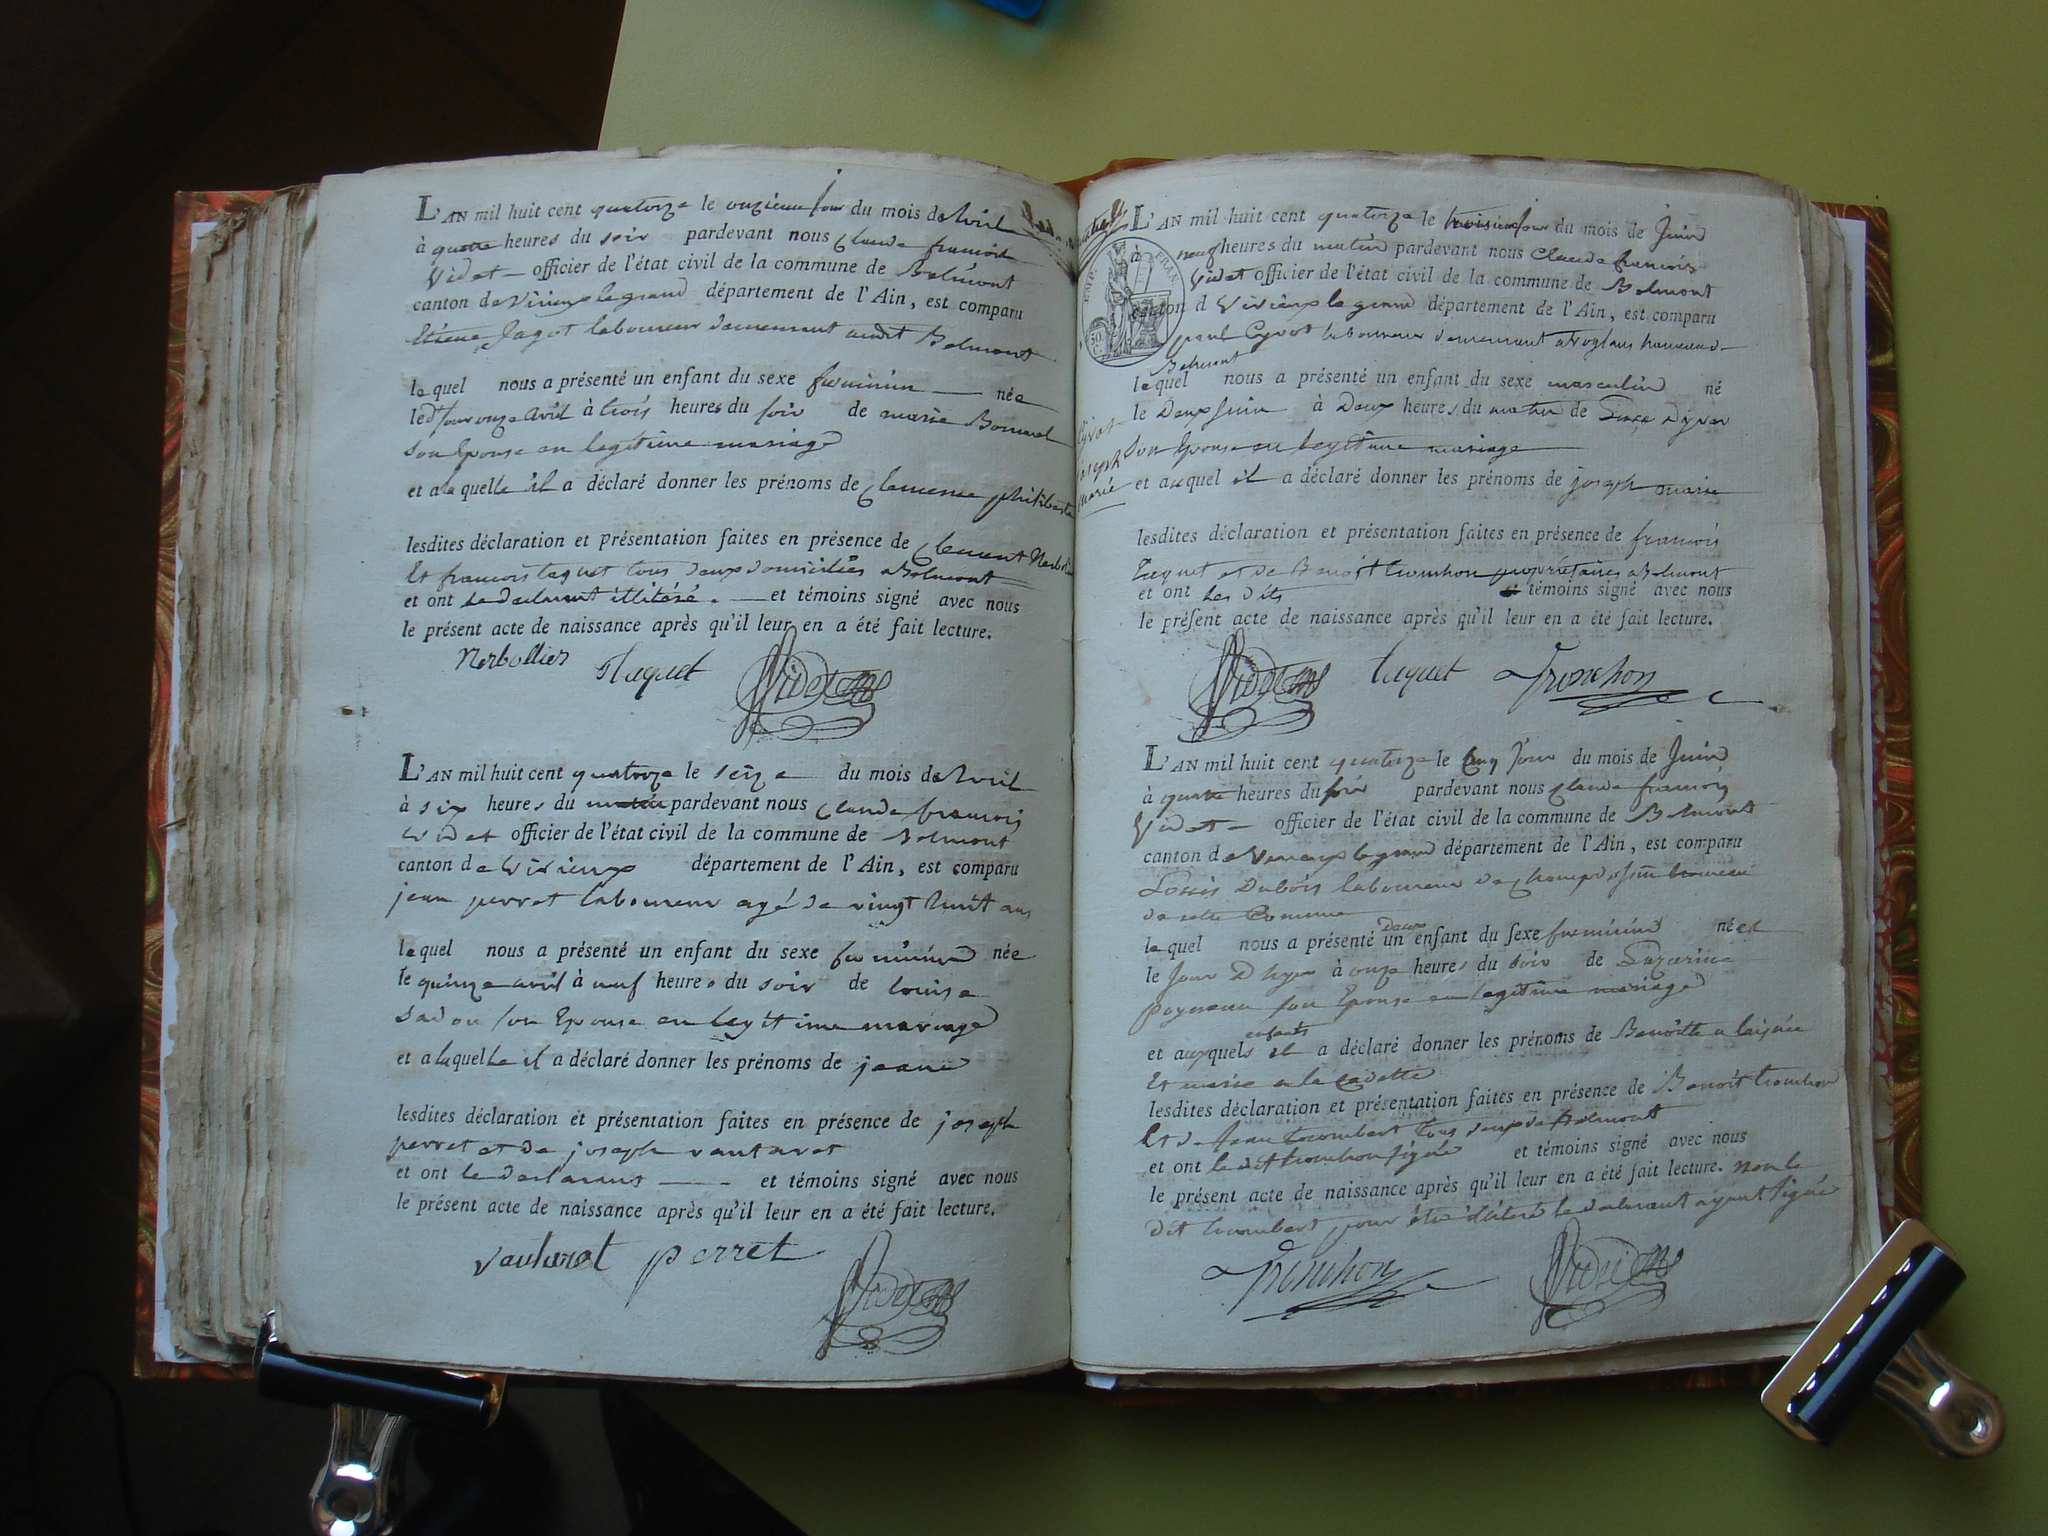 L'AN mil huit cent quatorze le onzieme jour du mois de Avril
à quatre heures du soir pardevant nous Claude françois
Videt officier de l'état civil de la commune de Belmont
canton de Virieux le grand département de l'Ain, est comparu
Etiene Jagot laboureur demeurant audit Belmont
lequel nous a présenté un enfant du sexe feminin née
le dt jour onze avril à trois heures du soir de marie Bonnard
son Epouse en legitime mariage
et a laquelle il a déclaré donner les prénoms de Clemence philiberte
lesdites déclaration et présentation faites en présence de Clement Nerbollier
Et francois taquet tous deux domiciliés a Belmont
et ont le declarant illitéré. et témoins signé avec nous
le présent acte de naissance après qu'il leur en a été fait lecture.
Nerbollier ftaquet Videt
L'AN mil huit cent quatorze le seize du mois de Avril
à six heures du matin pardevant nous Claude françois
Videt officier de l'état civil de la commune de Belmont
canton de Virieux département de l'Ain, est comparu
jean perret laboureur agé de vingt huit ans
lequel nous a présenté un enfant du sexe feminin née
le quinze avril à neuf heures du soir de louise
son Epouse en legitime mariage
et a laquelle il a déclaré donner les prénoms de jeanne
lesdites déclaration et présentation faites en présence de joseph
perret et de joseph vautaret
et ont le declarant et témoins signé avec nous
le présent acte de naissance après qu'il leur en a été fait lecture.
vautaret perret Videt
L'AN mil huit cent quatorze le troisieme jour du mois de Juin
à neuf heures du matin pardevant nous Claude francois
Videt officier de l'état civil de la commune de Belmont
canton d Virieux le grand département de l'Ain, est comparu
EMP. FRAN.
50 C.
paul Cyvot laboureur demeurant a hameau
Belmont
lequel nous a présenté un enfant du sexe masculin né
le Deux Juin à Deux heures du matin de
Cyvot
joseph
marie
son Epouse en legitime mariage
et auquel il a déclaré donner les prénoms de joseph marie
lesdites déclaration et présentation faites en présence de francois
Taquet et de Benoit tronchon propriétaires a Belmont
et ont les dits témoins signé avec nous
le présent acte de naissance après qu'il leur en a été fait lecture.
Videt taquet Tronchon
L'AN mil huit cent quatorze le Cinq Jour du mois de Juin
à quatre heures du soir pardevant nous Claude françois
Videt officier de l'état civil de la commune de Belmont
canton de Virieux le grand département de l'Ain, est comparu
Louis Dubois laboureur de hameau
de cette Commune
lequel nous a présenté un deux enfant du sexe feminin néés
le Jour D hyer à onze heures du soir de
son Epouse en legitime mariage
et auxquels enfants il a déclaré donner les prénoms de Benoitte a laisnée
Et marie a la Cadette
lesdites déclaration et présentation faites en présence de Benoit tronchon
Et de Jean tous deux de Belmont
et ont le dit tronchon signé et témoins signé avec nous
le présent acte de naissance après qu'il leur en a été fait lecture. non le
dit pour étre illiteré le declarant ayant signé
Tronchon Videt